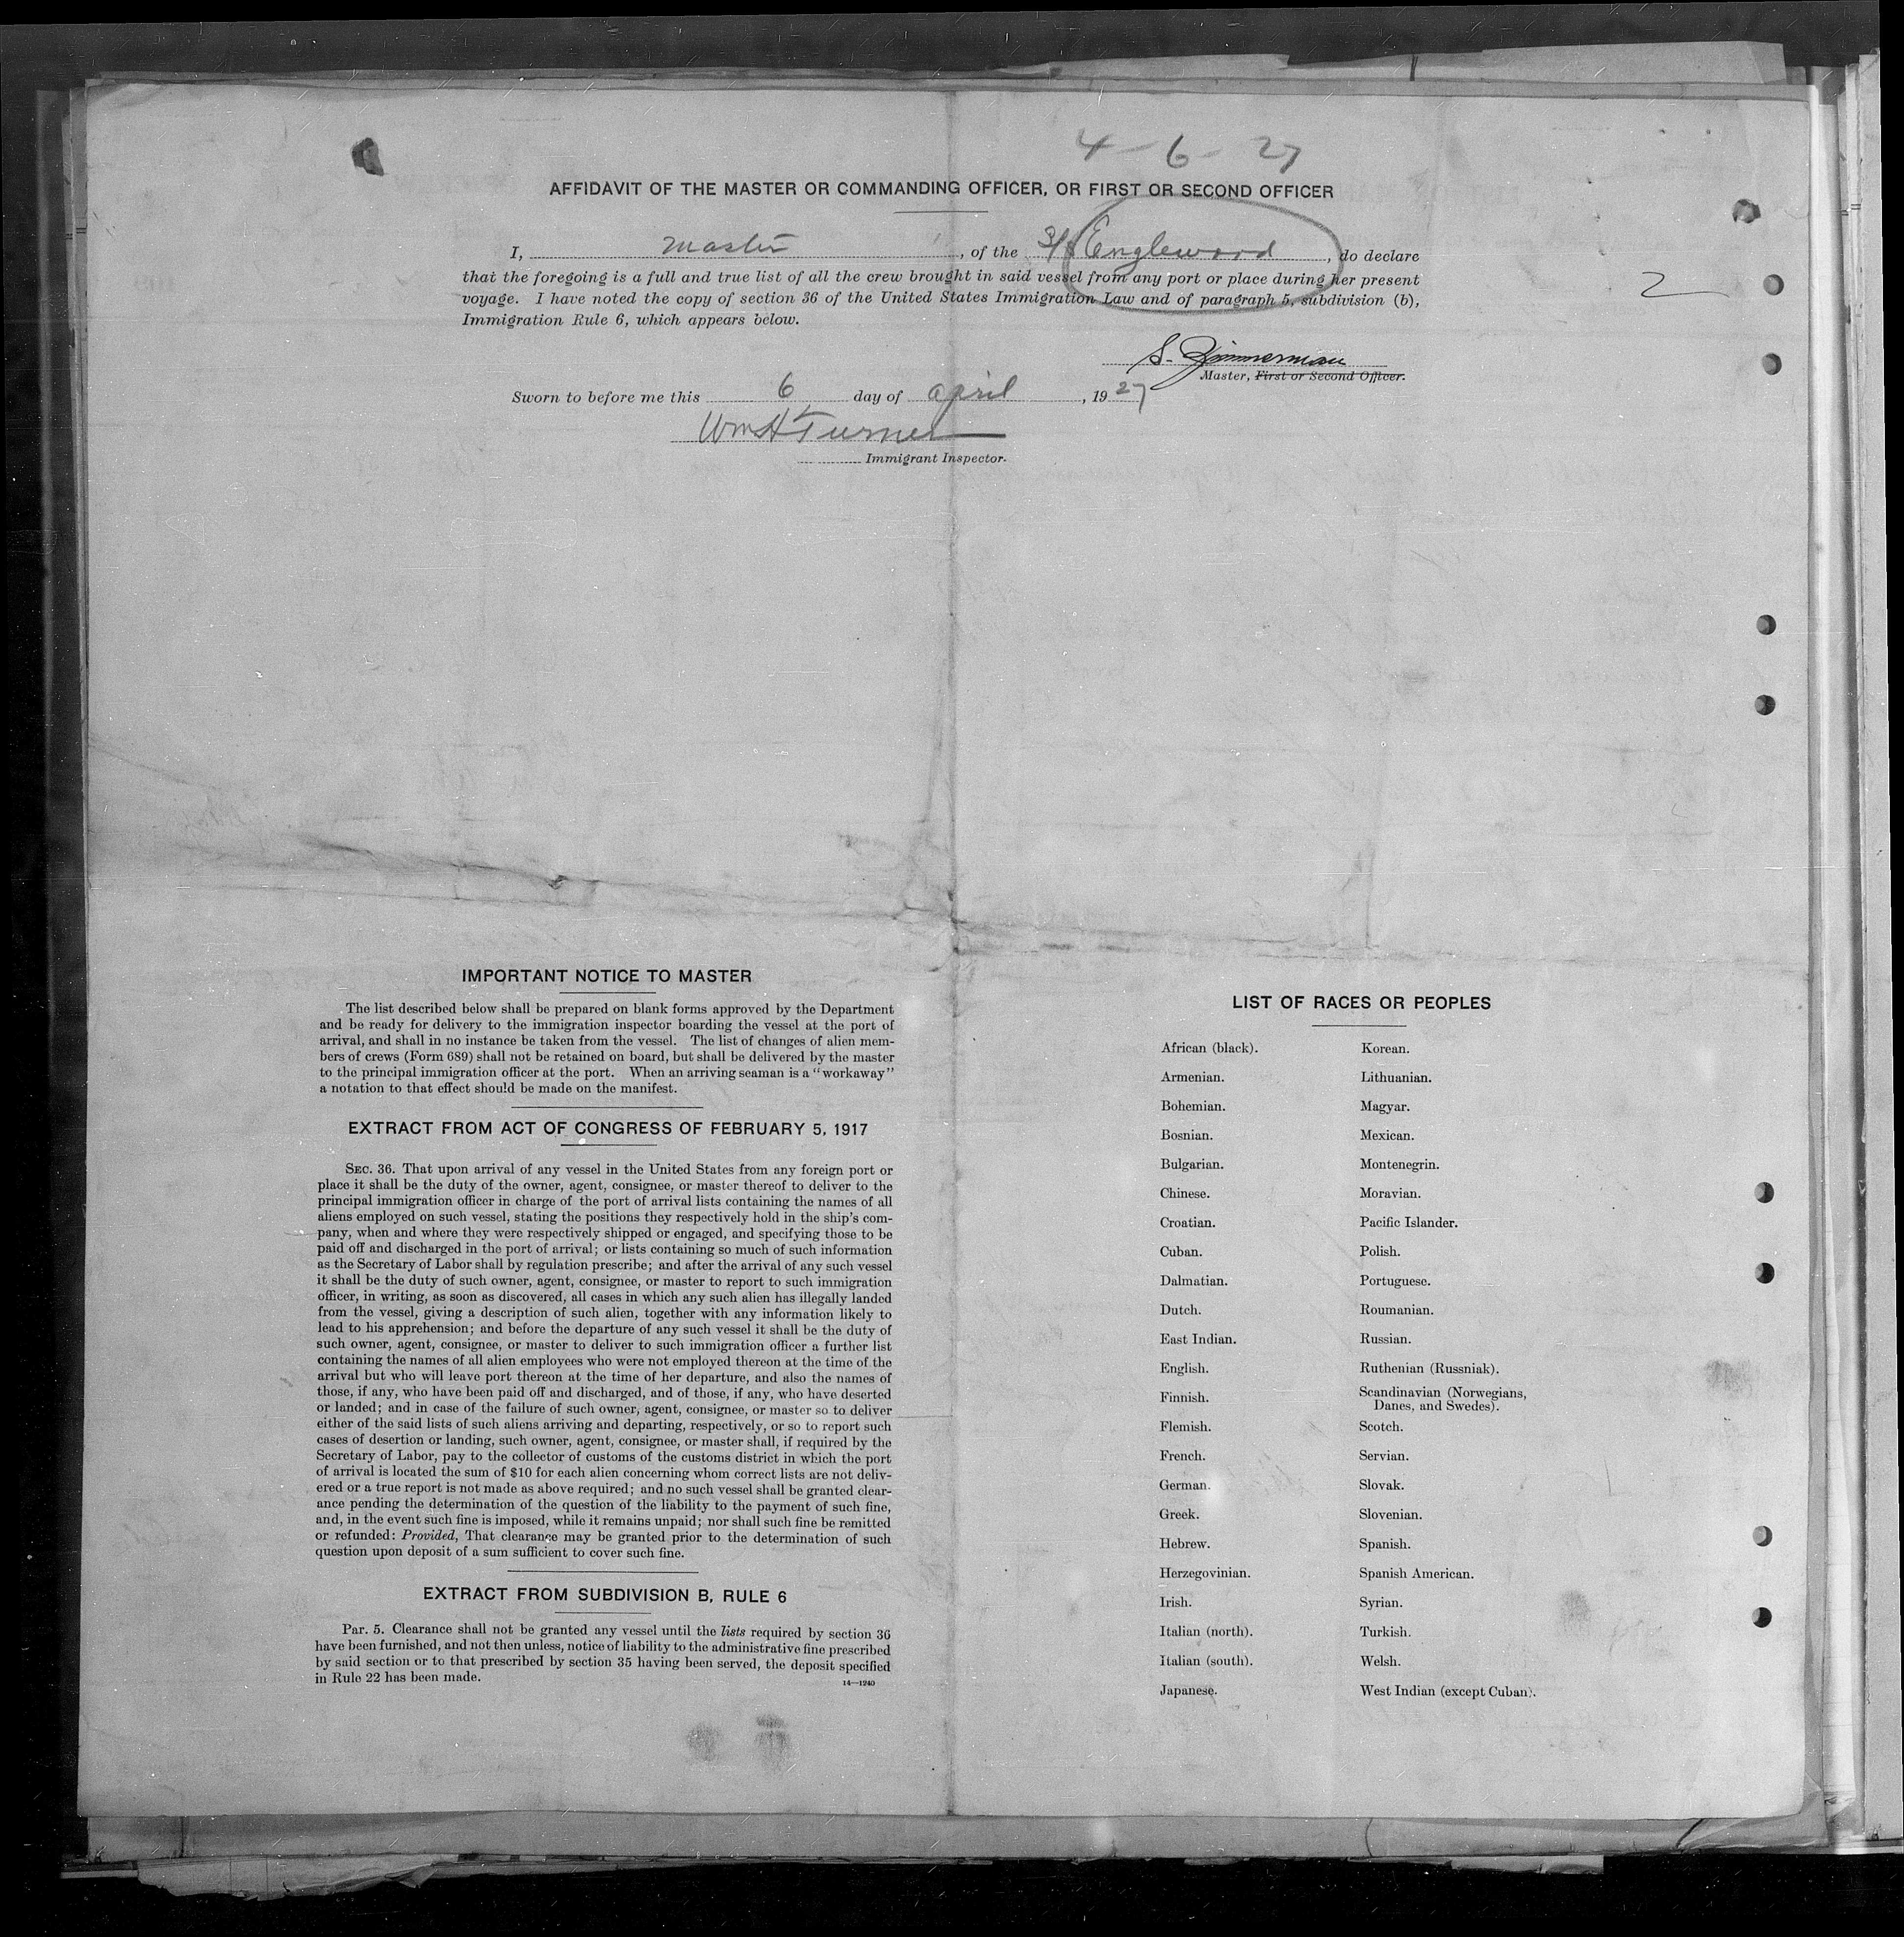 4-6-27
AFFIDAVIT OF THE MASTER OR COMMANDING OFFICER, OR FIRST OR SECOND OFFICER
I, Master, of the S/S Englewood, do declare
that the foregoing is a full and true list of all the crew brought in said vessel from any port or place during her present
voyage. I have noted the copy of section 36 of the United States Immigration Law and of paragraph 5, subdivision (b),
Immigration Rule 6, which appears below.
2
S. Zimmerman
Master, First or Second Officer.
Sworn to before me this 6 day of April, 1927
Wm H Turner
Immigrant Inspector.
IMPORTANT NOTICE TO MASTER
The list described below shall be prepared on blank forms approved by the Department
and be ready for delivery to the immigration inspector boarding the vessel at the port of
arrival, and shall in no instance be taken from the vessel. The list of changes of alien mem-
bers of crews (Form 689) shall not be retained on board, but shall be delivered by the master
to the principal immigration officer at the port. When an arriving seaman is a "workaway"
a notation to that effect should be made on the manifest.
EXTRACT FROM ACT OF CONGRESS OF FEBRUARY 5, 1917
SEC. 36. That upon arrival of any vessel in the United States from any foreign port or
place it shall be the duty of the owner, agent, consignee, or master thereof to deliver to the
principal immigration officer in charge of the port of arrival lists containing the names of all
aliens employed on such vessel, stating the positions they respectively hold in the ship's com-
pany, when and where they were respectively shipped or engaged, and specifying those to be
paid off and discharged in the port of arrival; or lists containing so much of such information
as the Secretary of Labor shall by regulation prescribe; and after the arrival of any such vessel
it shall be the duty of such owner, agent, consignee, or master to report to such immigration
officer, in writing, as soon as discovered, all cases in which any such alien has illegally landed
from the vessel, giving a description of such alien, together with any information likely to
lead to his apprehension; and before the departure of any such vessel it shall be the duty of
such owner, agent, consignee, or master to deliver to such immigration officer a further list
containing the names of all alien employees who were not employed thereon at the time of the
arrival but who will leave port thereon at the time of her departure, and also the names of
those, if any, who have been paid off and discharged, and of those, if any, who have deserted
or landed; and in case of the failure of such owner, agent, consignee, or master so to deliver
either of the said lists of such aliens arriving and departing, respectively, or so to report such
cases of desertion or landing, such owner, agent, consignee, or master shall, if required by the
Secretary of Labor, pay to the collector of customs of the customs district in which the port
of arrival is located the sum of $10 for each alien concerning whom correct lists are not deliv-
ered or a true report is not made as above required; and no such vessel shall be granted clear-
ance pending the determination of the question of the liability to the payment of such fine,
and, in the event such fine is imposed, while it remains unpaid; nor shall such fine be remitted
or refunded: Provided, That clearance may be granted prior to the determination of such
question upon deposit of a sum sufficient to cover such fine.
EXTRACT FROM SUBDIVISION B, RULE 6
Par. 5. Clearance shall not be granted any vessel until the lists required by section 36
have been furnished, and not then unless, notice of liability to the administrative fine prescribed
by said section or to that prescribed by section 35 having been served, the deposit specified
in Rule 22 has been made.
14—1240
LIST OF RACES OR PEOPLES
African (black). Korean.
Armenian. Lithuanian.
Bohemian. Magyar.
Bosnian. Mexican.
Bulgarian. Montenegrin.
Chinese. Moravian.
Croatian. Pacific Islander.
Cuban. Polish.
Dalmatian. Portuguese.
Dutch. Roumanian.
East Indian. Russian.
English. Ruthenian (Russniak).
Finnish. Scandinavian (Norwegians,
Danes, and Swedes).
Flemish. Scotch.
French. Servian.
German. Slovak.
Greek. Slovenian.
Hebrew. Spanish.
Herzegovinian. Spanish American.
Irish. Syrian.
Italian (north). Turkish.
Italian (south). Welsh.
Japanese. West Indian (except Cuban).